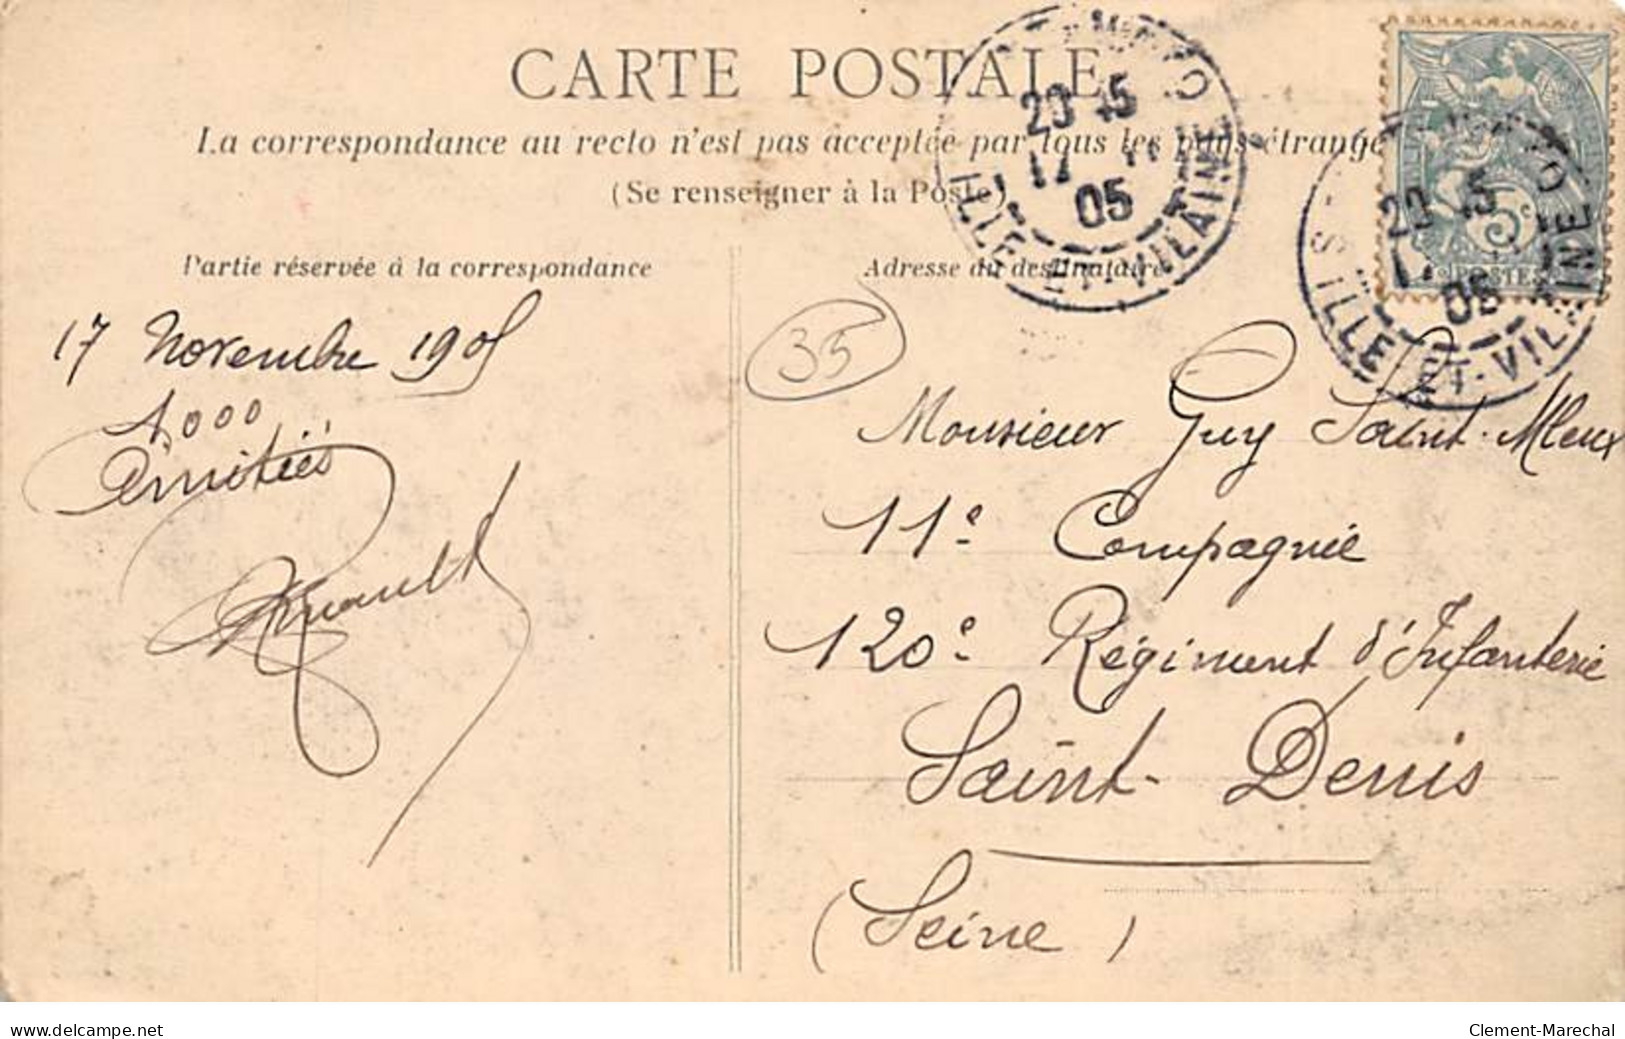 CARTE POSTALE
La correspondance au recto n'est pas acceptée par tous les pays étrang
(Se renseigner à la Poste)
Partie réservée à la correspondance
Adresse du destinataire
20 45
17 11
05
ILLE-ET-VILAINE
20 45
05
ILLE-ET-VILAINE
5c
POSTES
17 Novembre 1905
1.000
Amitiés
35
Monsieur Guy Saint-Mleux
11e Compagnie
120e Régiment d'Infanterie
Saint-Denis
(Seine)
www.delcampe.net
Clement-Marechal